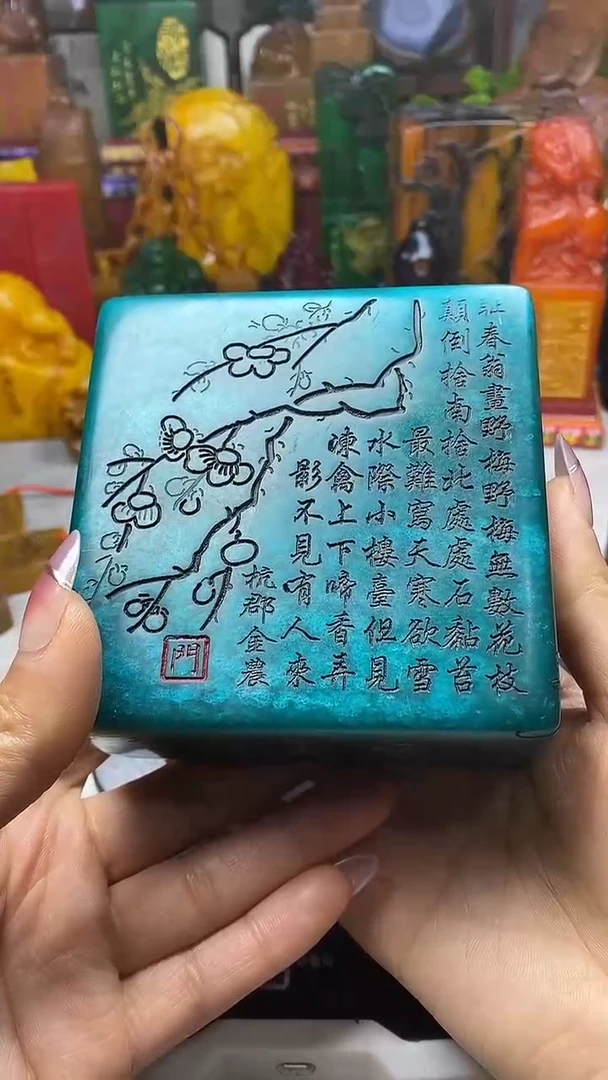 耻春翁畫野梅野梅無數花枝
顛倒捨南捨北處處石黏苔
最難寫天寒欲雪
水際小樓臺但見
凍禽上下啼香弄
影不見有人來
杭郡金農
門